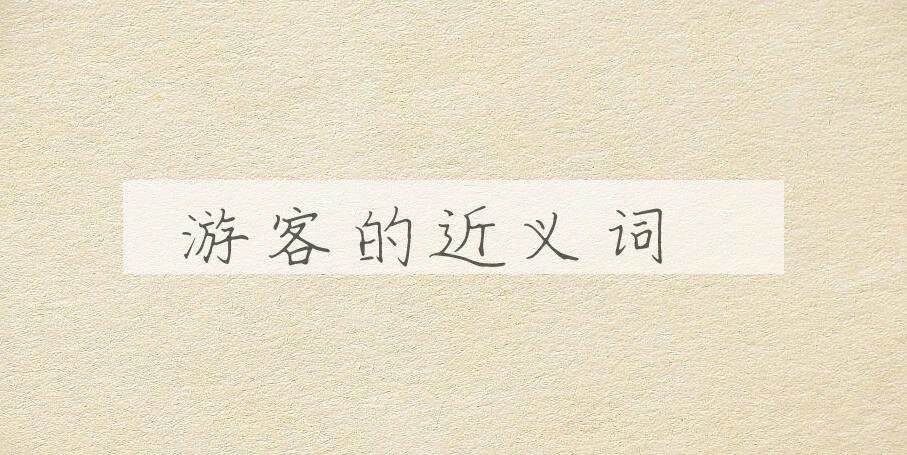 游客的近义词